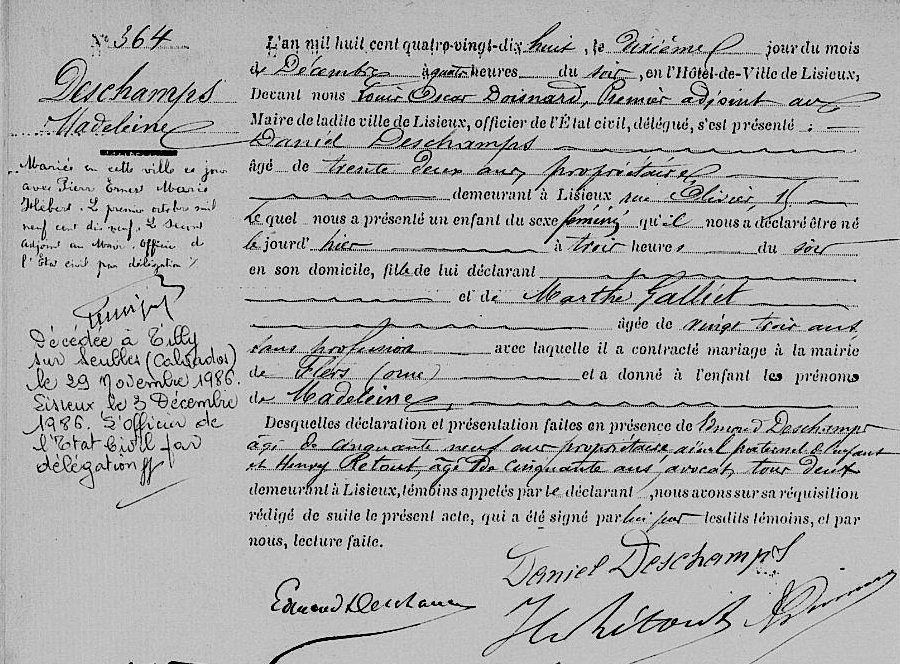 N° 364
Deschamps
Madeleine
Mariée en cette ville ce jour
avec Pierre Ernest Marie
Hébert. Le premier octobre mil
neuf cent dix neuf. Le Second
adjoint au Maire. Officier de
l'État civil par délégation %
Décédée à Tilly
sur Seulles (Calvados)
le 29 Novembre 1986.
Lisieux le 3 Décembre
1986. L'Officier de
l'Etat Civil par
délégation
L'an mil huit cent quatre-vingt-dix huit, le dixième jour du mois
de Décembre à quatre heures du soir, en l'Hôtel-de-Ville de Lisieux,
Devant nous Louis Oscar Doisnard, Premier adjoint au
Maire de ladite ville de Lisieux, officier de l'État civil, délégué, s'est présenté :
Daniel Deschamps
âgé de trente deux ans, propriétaire
demeurant à Lisieux rue Olivier, 15
Lequel nous a présenté un enfant du sexe féminin qu'il nous a déclaré être né
le jourd'hier à trois heures du soir
en son domicile, fille de lui déclarant
et de Marthe Galliet
âgée de vingt trois ans
sans profession avec laquelle il a contracté mariage à la mairie
de Flers (Orne) et a donné à l'enfant les prénoms
de Madeleine,
Desquelles déclaration et présentation faites en présence de Edmond Deschamps
âgé de cinquante neuf ans propriétaire aïeul paternel de l'enfant
et Henry Retout, âgé de cinquante ans, avocat, tous deux
demeurant à Lisieux, témoins appelés par le déclarant, nous avons sur sa réquisition
rédigé de suite le présent acte, qui a été signé par lui par lesdits témoins, et par
nous, lecture faite.
Daniel Deschamps
Edmond Deschamps
H Rétout